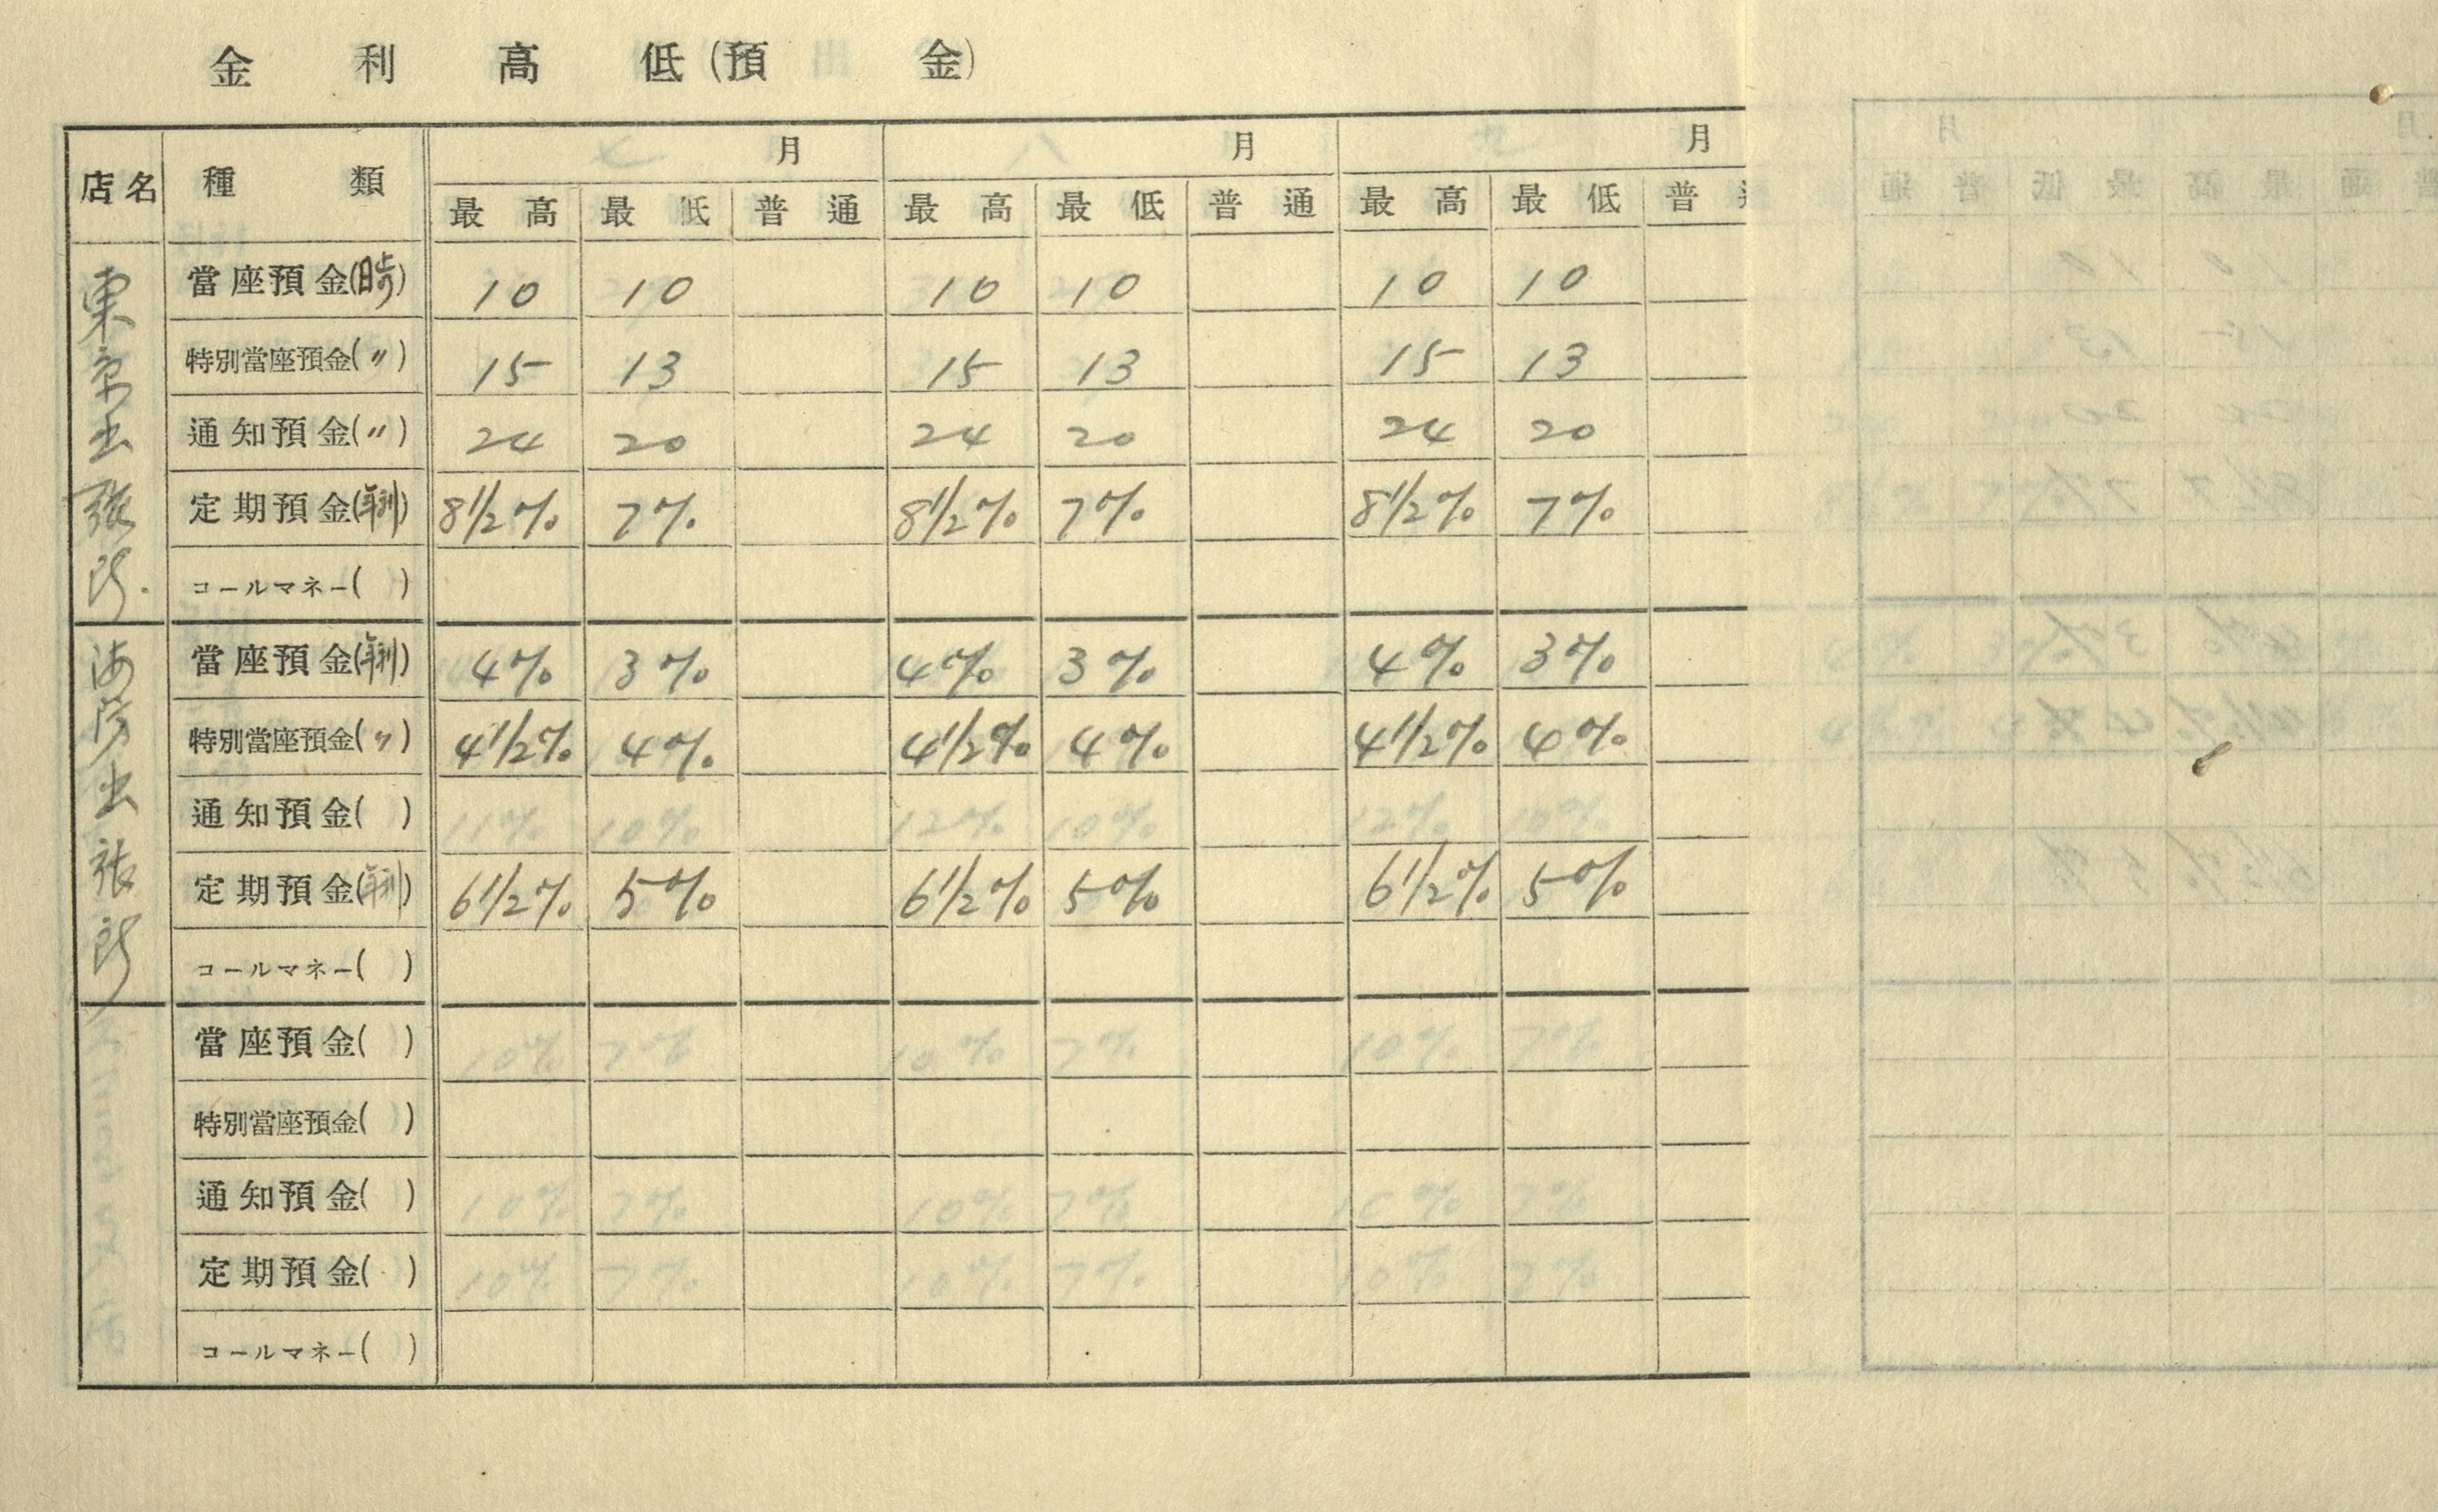 金利高低(預金)
店名 種類 七月 八月 九月
最高 最低 普通 最高 最低 普通 最高 最低 普通
東京出張所 當座預金(日歩) 10 10 10 10 10 10
特別當座預金(〃) 15 13 15 13 15 13
通知預金(〃) 24 20 24 20 24 20
定期預金(年利) 8 1/2% 7% 8 1/2% 7% 8 1/2% 7%
コールマネー( )
海防出張所 當座預金(年利) 4% 3% 4% 3% 4% 3%
特別當座預金(〃) 4 1/2% 4% 4 1/2% 4% 4 1/2% 4%
通知預金( )
定期預金(年利) 6 1/2% 5% 6 1/2% 5% 6 1/2% 5%
コールマネー( )
當座預金( )
特別當座預金( )
通知預金( )
定期預金( )
コールマネー( )